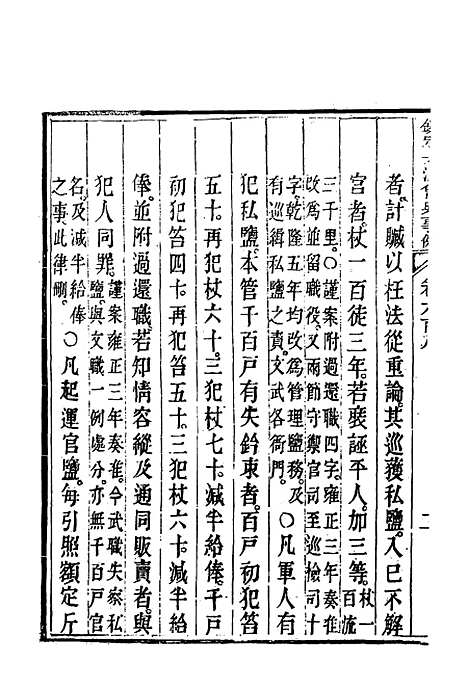 者。計贓以枉法從重論。其巡獲私鹽。入己不解
官者。杖一百徒三年。若裝誣平人。加三等。杖一百流
三千里。○謹案附過還職四字。雍正三年奏准
改為並留職役。又兩節守禦官司至巡檢司十
字。乾隆五年均改為管理鹽務。及
有巡緝私鹽之責。文武各衙門。○凡軍人有
犯私鹽。本管千百戶有失鈐束者。百戶初犯笞
五十。再犯杖六十。三犯杖七十。減半給俸。千戶
初犯笞四十。再犯笞五十。三犯杖六十。減半給
俸。並附過還職。若知情容縱及通同販賣者。與
犯人同罪。謹案雍正三年奏准。今武職失察私
鹽。與文職一例處分。亦無千百戶官
名。及減半給俸
之事。此律刪。○凡起運官鹽。每引照額定斤